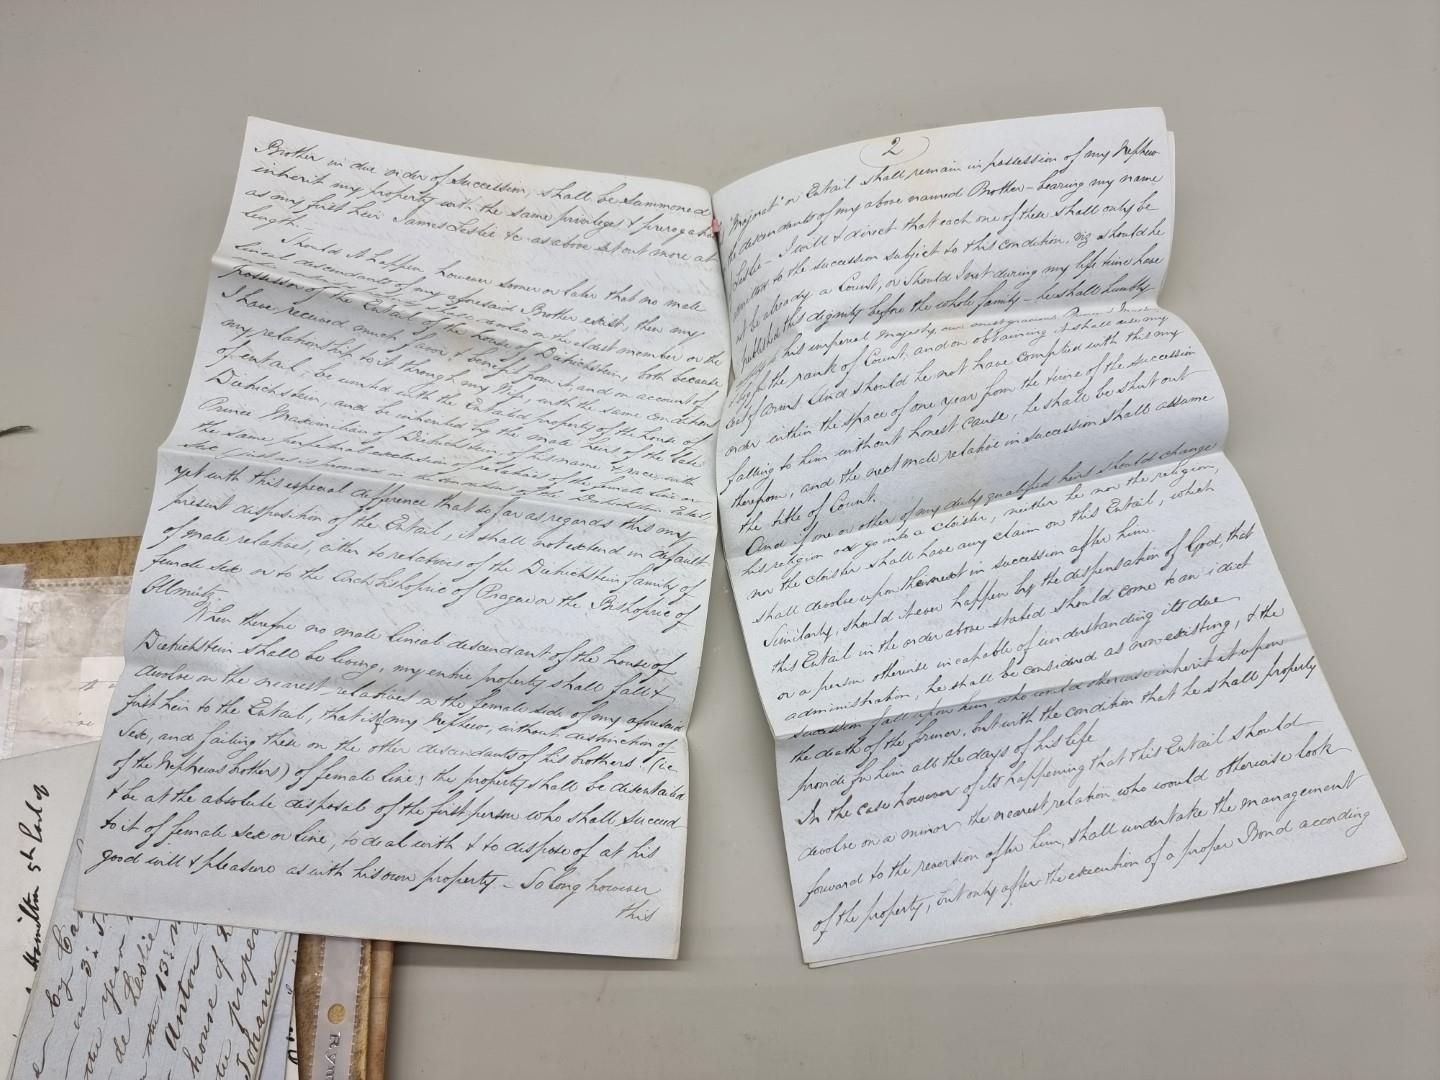 Brother in due order of succession, shall be summoned
inherit my property with the same privileges & prerogative
as my first heir James Leslie &c as above set out more at
length.
Should it happen however sooner or later that no male
lineal descendants of my aforesaid Brother exist, then my
on the eldest member or the
possessor of the Entail of the house of Dietrichstein, both because
I have received much favor & benefit from it and on account of
my relationship to it through my Wife, with the same conditions
of entail - be united with the Entailed property of the house of
Dietrichstein, and be inherited by the male heirs of the late
Prince Maximilian of Dietrichstein, of his name & race, with
the same perpetual exclusion of relatives of the female line or
sex of the Dietrichstein Entail,
yet with this especial difference that so far as regards this my
present disposition of the Entail, it shall not extend in default
of male relatives, either to relatives of the Dietrichstein family of
female sex or to the Archbishopric of Prague or the Bishopric of
Ollmütz.
When therefore no male lineal descendant of the house of
Dietrichstein shall be living, my entire property shall fall &
devolve on the nearest relatives on the female side of my aforesaid
first heir to the Entail, that is, my Nephew, without distinction of
Sex, and failing these on the other descendants of his brothers (ie
of the Nephews brothers) of female line; the property shall be disentailed
& be at the absolute disposal of the first person who shall succeed
to it of female sex or line, to deal with & to dispose of at his
good will & pleasure as with his own property. - So long however
this
2
"Majorat" or Entail shall remain in possession of my Nephew
the descendants of my above named Brother - bearing my name
Leslie - I will & direct that each one of these shall only be
admitted to the succession subject to this condition, viz should he
not be already a Count, or should I not during my life time have
published this dignity before the whole family - he shall humbly
to his imperial Majesty, our most gracious
for the rank of Count, and on obtaining it shall use my
coat of arms. And should he not have complied with this my
order within the space of one year from the time of the succession
falling to him without honest cause, he shall be shut out
therefrom, and the next male relative in succession shall assume
the title of Count.
And if one or other of my duly qualified heirs should change
his religion or go into a cloister, neither he nor the religion,
nor the cloister shall have any claim on this Entail, which
shall devolve upon the next in succession after him.
Similarly, should it ever happen by the dispensation of God, that
this Entail in the order above stated should come to an idiot
or a person otherwise incapable of understanding its due
administration, he shall be considered as non-existing, & the
succession fall upon him, who would otherwise inherit it upon
the death of the former, but with the condition that he shall properly
provide for him all the days of his life.
In the case however of its happening that this Entail should
devolve on a minor the nearest relation who would otherwise look
forward to the reversion after him, shall undertake the management
of the property, but only after the execution of a proper Bond according
Hamilton 5th Earl of
by Ca
in 3
the year
de Leslie
the 13
Anton
house of
the proper
Johann